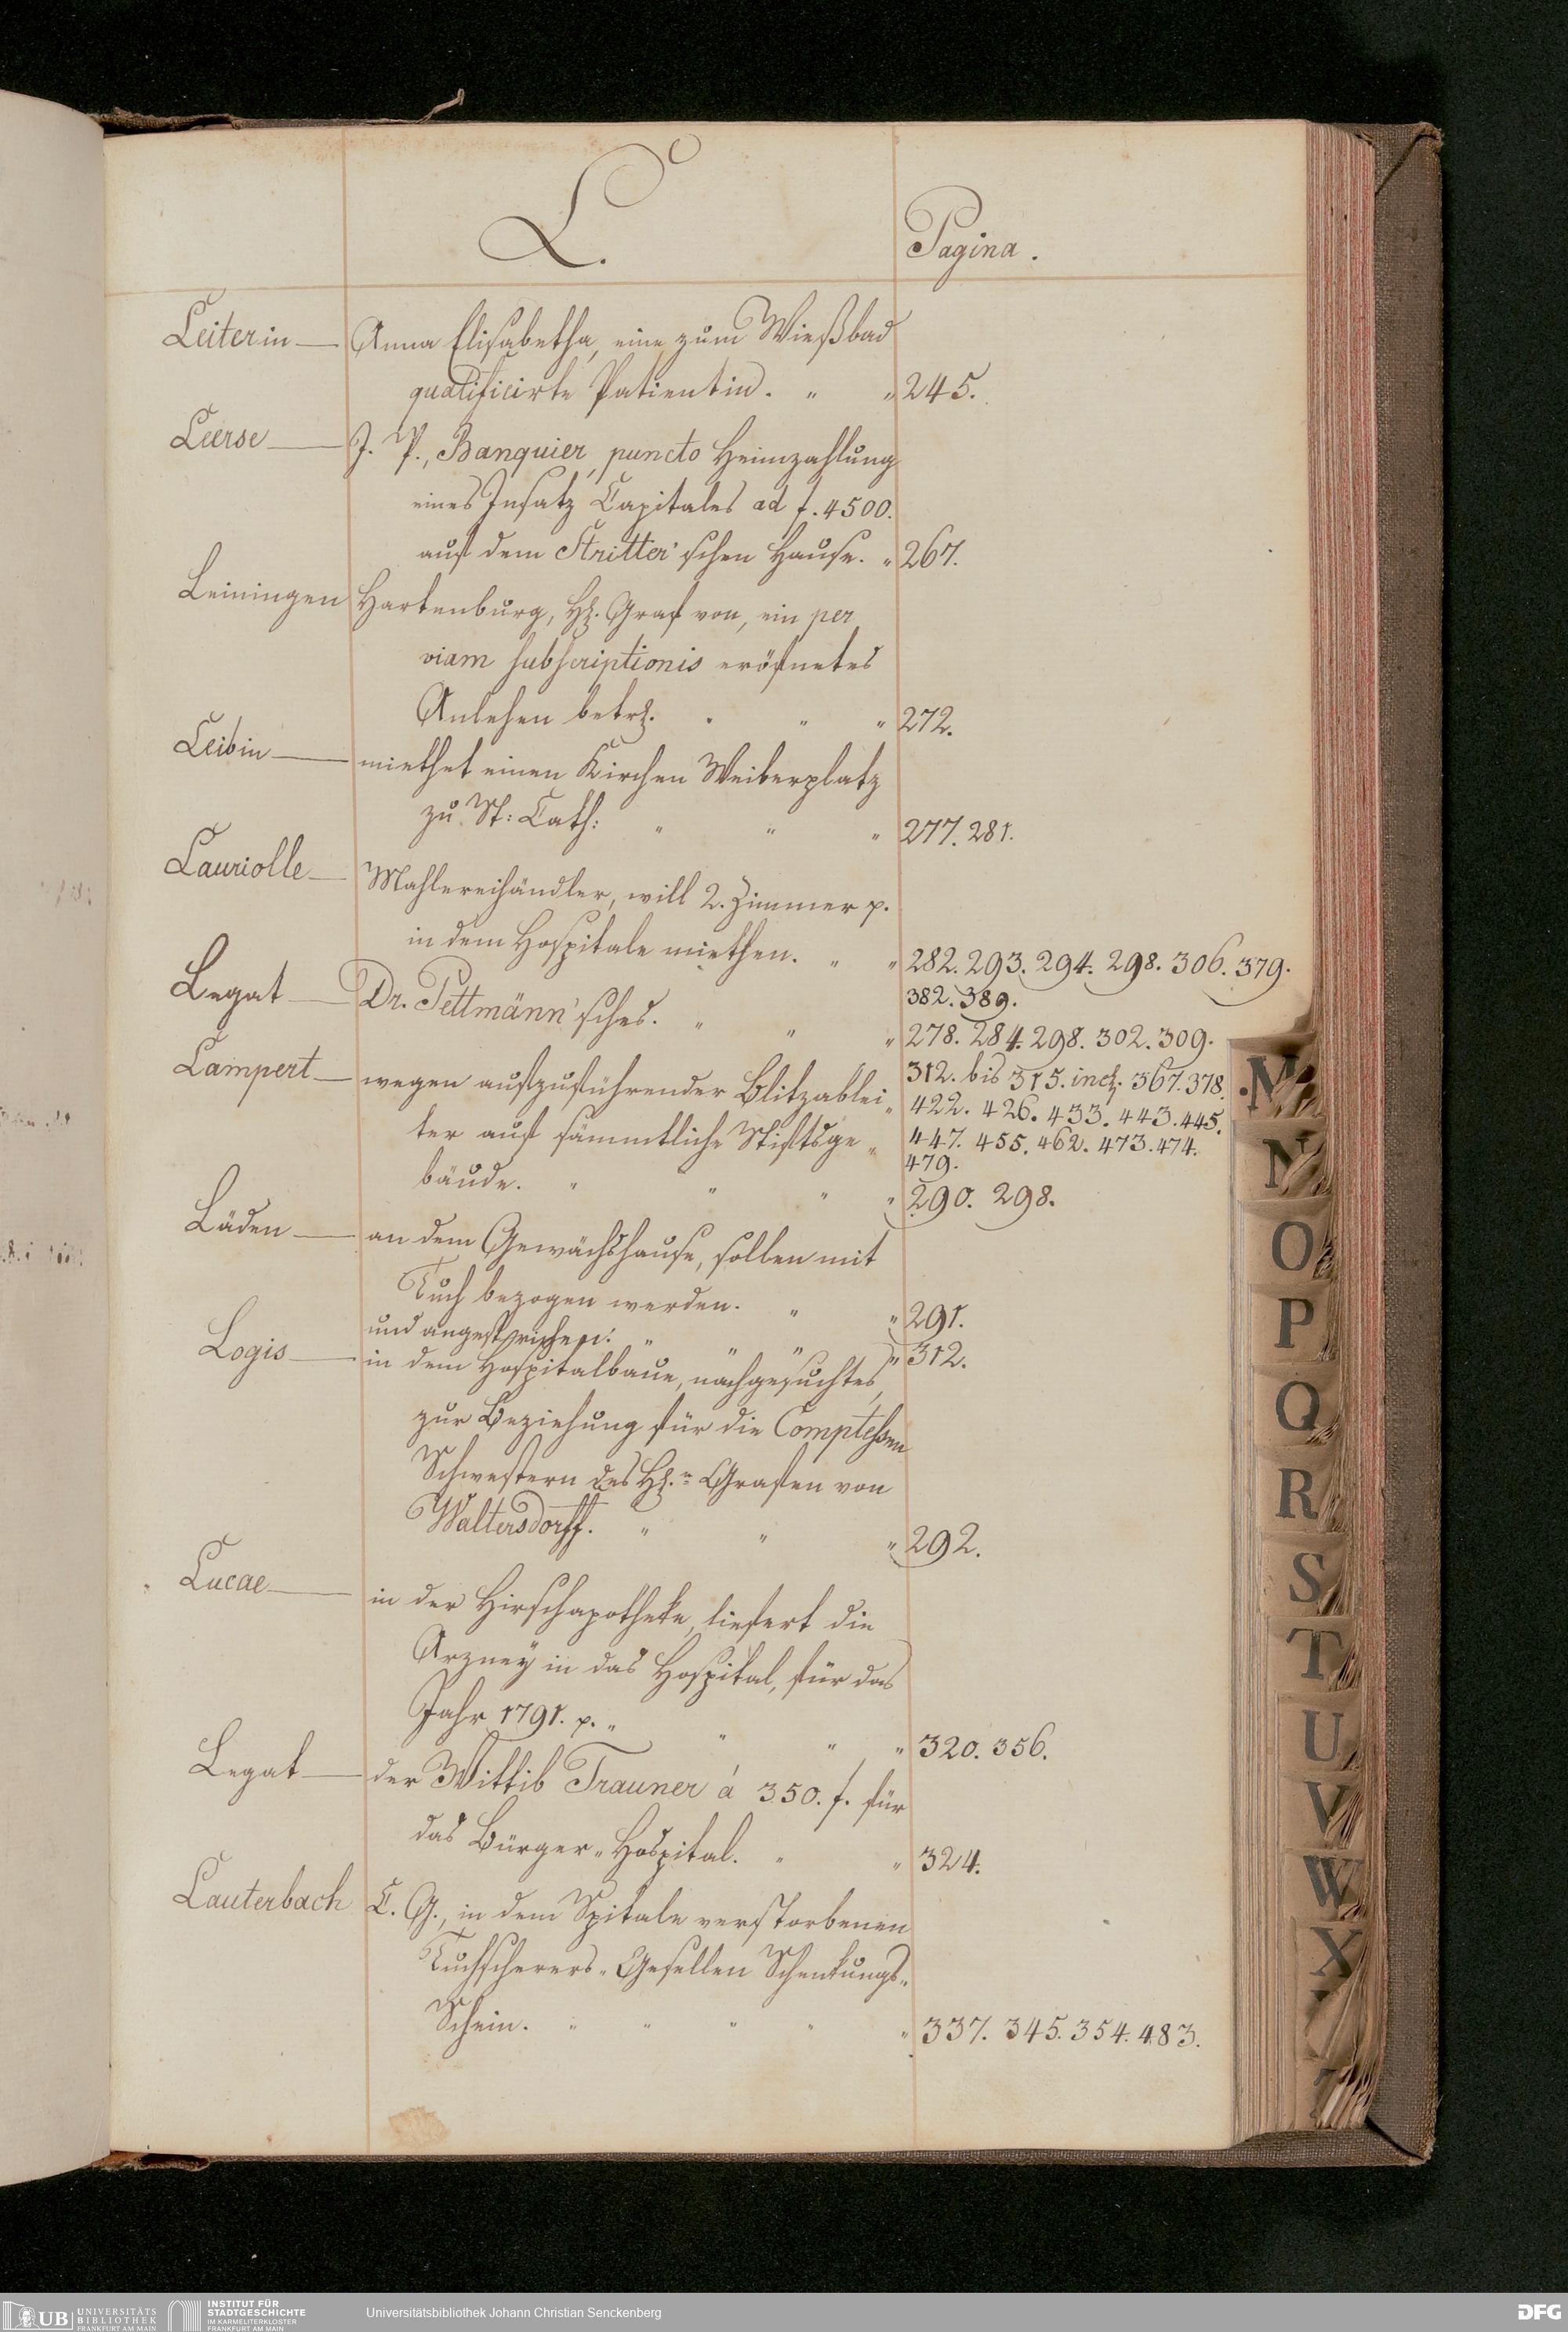 L.
Pagina.
Leiterin — Anna Elisabetha, eine zum Wießbad
qualificirte Patientin. " " 245.
Leerse — J. P., Banquier, puncto Heimzahlung
eines Insatz Capitales ad f. 4500.
auf dem Stritter'schen Hause. " 267.
Leiningen Hartenburg, H. Graf von, ein per
viam subscriptionis eröfnetes
Anlehen betr. " " " 272.
Leibin — miethet einen Kirchen Weiberplatz
zu St: Cath: " " " 277. 281.
Lauriolle — Mahlereihändler, will 2. Zimmer p.
in dem Hospitale miethen. " " 282. 293. 294. 298. 306. 379.
382. 389.
Legat — Dr. Pettmänn'sches. " " " 278. 284. 298. 302. 309.
312. bis 315. incl. 367. 378.
422. 426. 433. 443. 445.
447. 455. 462. 473. 474.
479.
Lampert — wegen aufzuführender Blitzablei„
ter auf sämmtliche Stiftsge„
bäude. " " " " 290. 298.
Läden — an dem Gewächshause, sollen mit
Tuch bezogen werden. " " 291.
und angestrichen: " " " " 312.
Logis — in dem Hospitalbaue, nachgesuchtes,
zur Beziehung für die Comptessen
Schwestern des H.n Grafen von
Waltersdorff. " " " 292.
Lucae — in der Hirschapotheke, liefert die
Arzney in das Hospital, für das
Jahr 1791. p. " " " " 320. 356.
Legat — der Wittib Trauner à 350. f. für
das Bürger„Hospital. " " 324.
Lauterbach C. G., in dem Spitale verstorbenen
Tuchscherers„Gesellen Schenkungs„
Schein. " " " " " 337. 345. 354. 483.
M
N
O
P
Q
R
S
T
U
V
W
X
UB UNIVERSITÄTS
BIBLIOTHEK
FRANKFURT AM MAIN
INSTITUT FÜR
STADTGESCHICHTE
IM KARMELITERKLOSTER
FRANKFURT AM MAIN
Universitätsbibliothek Johann Christian Senckenberg
DFG